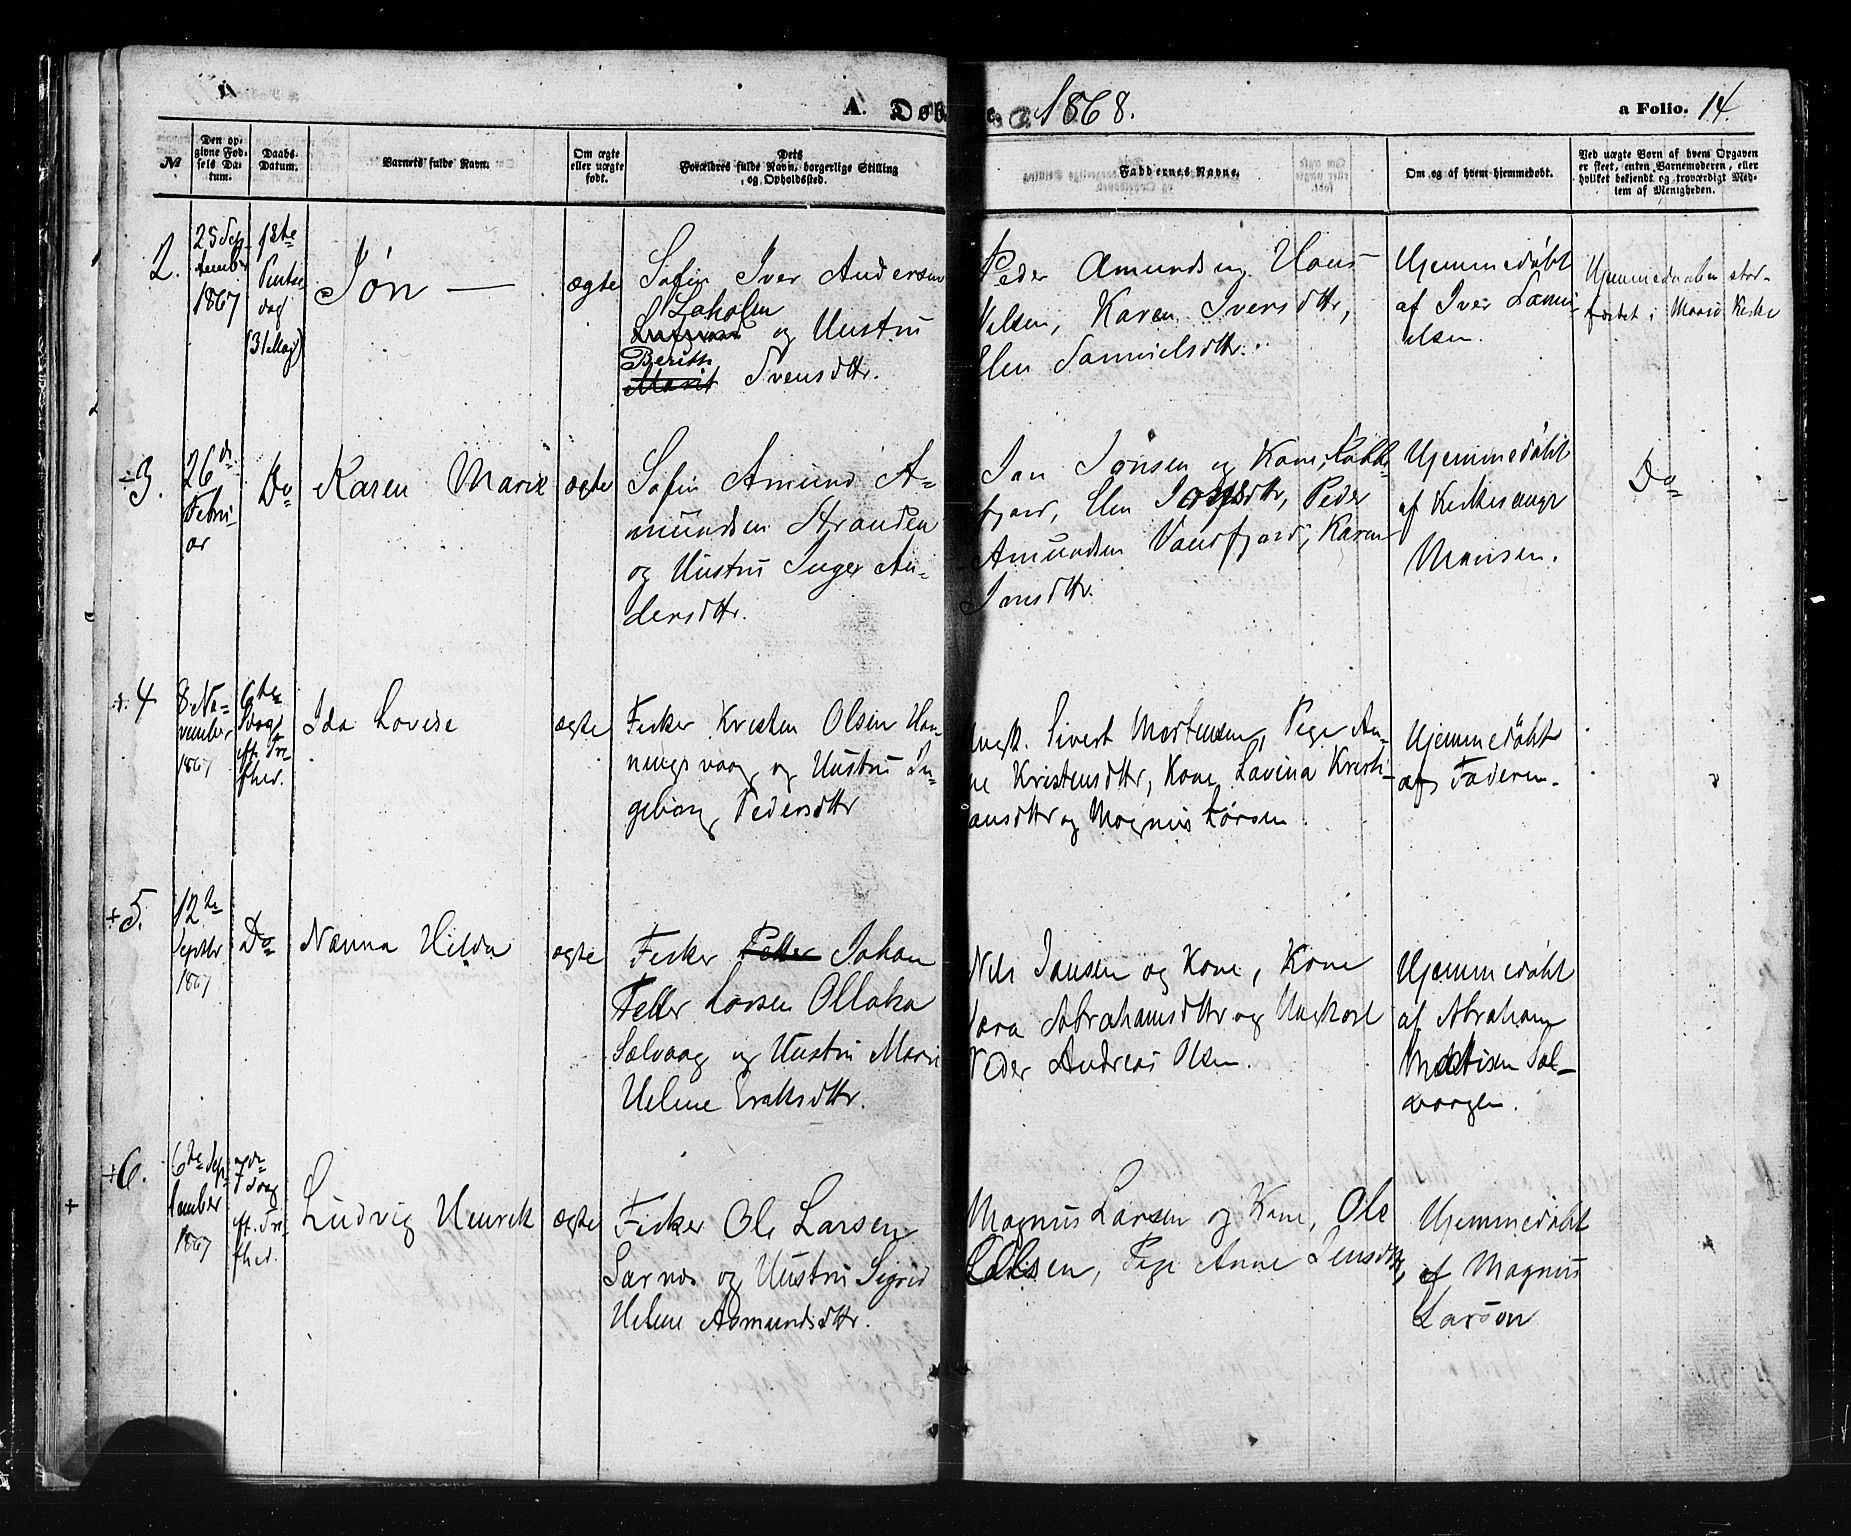 A. Døb
e. 1868.
a Folio. 14.
No
Den op-
givne Fød-
sels Da-
tum.
Daabs-
Datum.
Barnets fulde Navn.
Om ægte
eller uægte
født.
Dets
Forældres fulde Navn, borgerlige Stilling
og Opholdssted.
Faddernes Navne.
Om og af hvem hjemmedøbt.
Ved uægte Børn af hvem Opgaven
er skeet, enten Barnemoderen, eller
hvilket bekjendt og troværdigt Med-
lem af Menigheden.
2.
25 Sep-
tember
1867
1ste
Pintse
dag
(31 Maj)
Jøn —
ægte
Søfin Iver Andersen
Laholm
og Hustru
Berith
Marit Svensdttr.
Peder Amundsen, Hans
Nilsen, Karen Iversdttr,
Elen Samuelsdttr.
Hjemmedøbt
af Iver Samu-
elsen.
Hjemmedaaben stad-
fæstet i Maasø Kirke
3.
26de
Febru-
ar
Do
Karen Marie
ægte
Søfin Amund A-
mundsen Stranden
og Hustru Inger An-
dersdttr.
Jan Jonsen og Kone,
fjord, Elen Jonsdttr, Peder
Amundsen Vandfjord, Karen
Jonsdttr.
Hjemmedøbt
af Kirkesanger
Monsen.
Do
4
8 No-
vember
1867
6te
Sdag
eft. Tre-
fhed.
Ida Lovise
ægte
Fisker Kristen Olsen Hon-
ningsvaag og Hustru In-
geborg Pedersdttr
Ungk. Sivert Mortensen, Pige An-
ne Kristensdttr, Kone Lavina Kristi-
ansdttr og Magnus Larsen
Hjemmedøbt
af Faderen.
5.
12te
Septbr
1867
Do
Nanna Hilda
ægte
Fisker Petter Johan
Petter Larsen Ollaka
Sælvaag og Hustru Marie
Helene Eraksdttr.
Nils Jansen og Kone, Kone
Sara Abrahamsdttr og Ungkarl
Peder Andreas Olsen.
Hjemmedøbt
af Abraham
Mathisen Sæl-
vaagen.
6.
6te Sep-
tember
1867
Sdag
eft. Tre-
fhed.
Ludvig Henrik
ægte
Fisker Ole Larsen
Sarnæs og Hustru Sigrid
Helene Asmundsdttr.
Magnus Larsen og Kone, Ole
Olsen, Pige Anne Jensdttr,
Hjemmedøbt
af Magnus
Larson